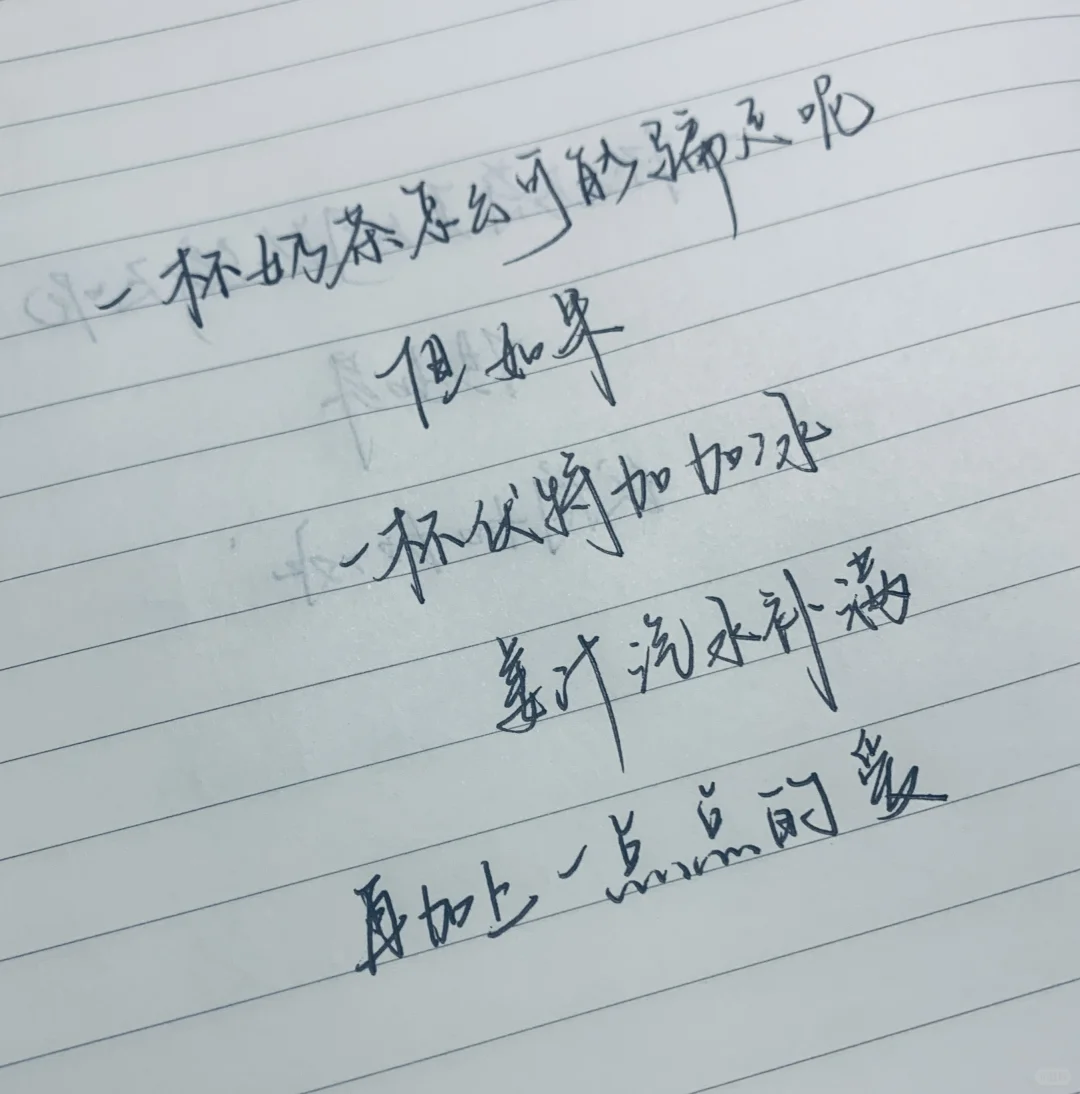 一杯奶茶怎么可能骗足呢
但如果
一杯伏特加加冰
姜汁汽水补满
再加上一点点的爱